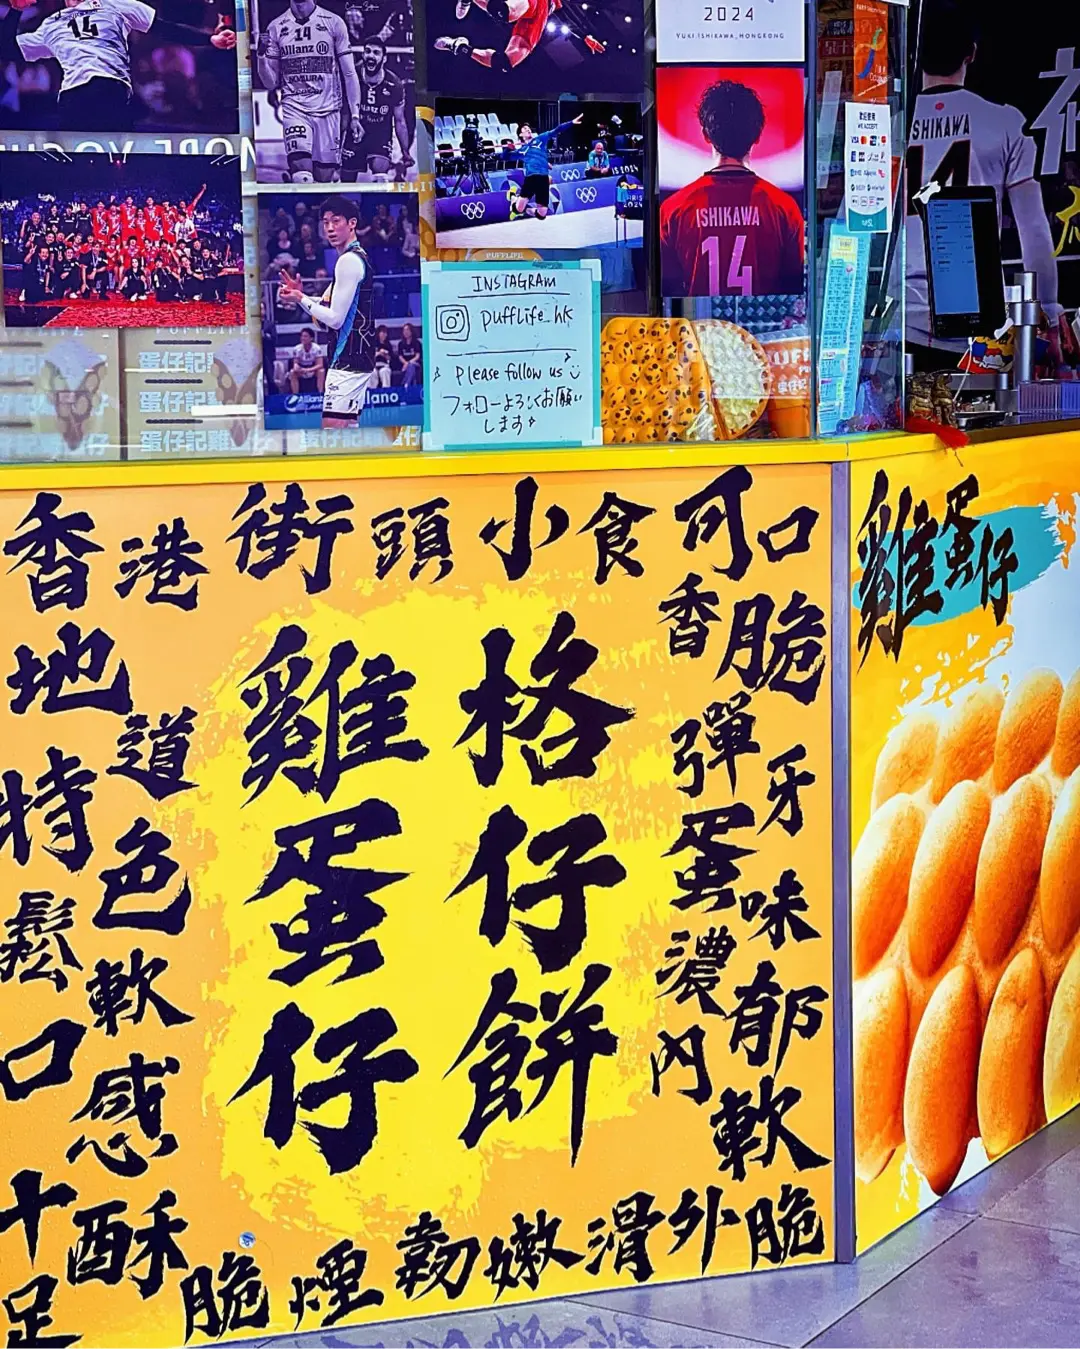 14
14
Allianz
coop
14
5
2024
YUKI ISHIKAWA, HONGKONG
歡迎使用
WE ACCEPT
VISA
ISHIKAWA
14
SHIKAWA
14
PUFFLIFE
蛋仔記
蛋仔記
蛋仔記雞
INSTAGRAM
pufflife_hk
Please follow us
フォローよろしくお願い
します
香港
街頭
小食
可口
香脆
彈牙
蛋味
濃郁
內軟
外脆
地道
特色
鬆軟
口感
十足
酥脆
煙韌
嫩滑
雞蛋仔
格仔餅
雞蛋仔